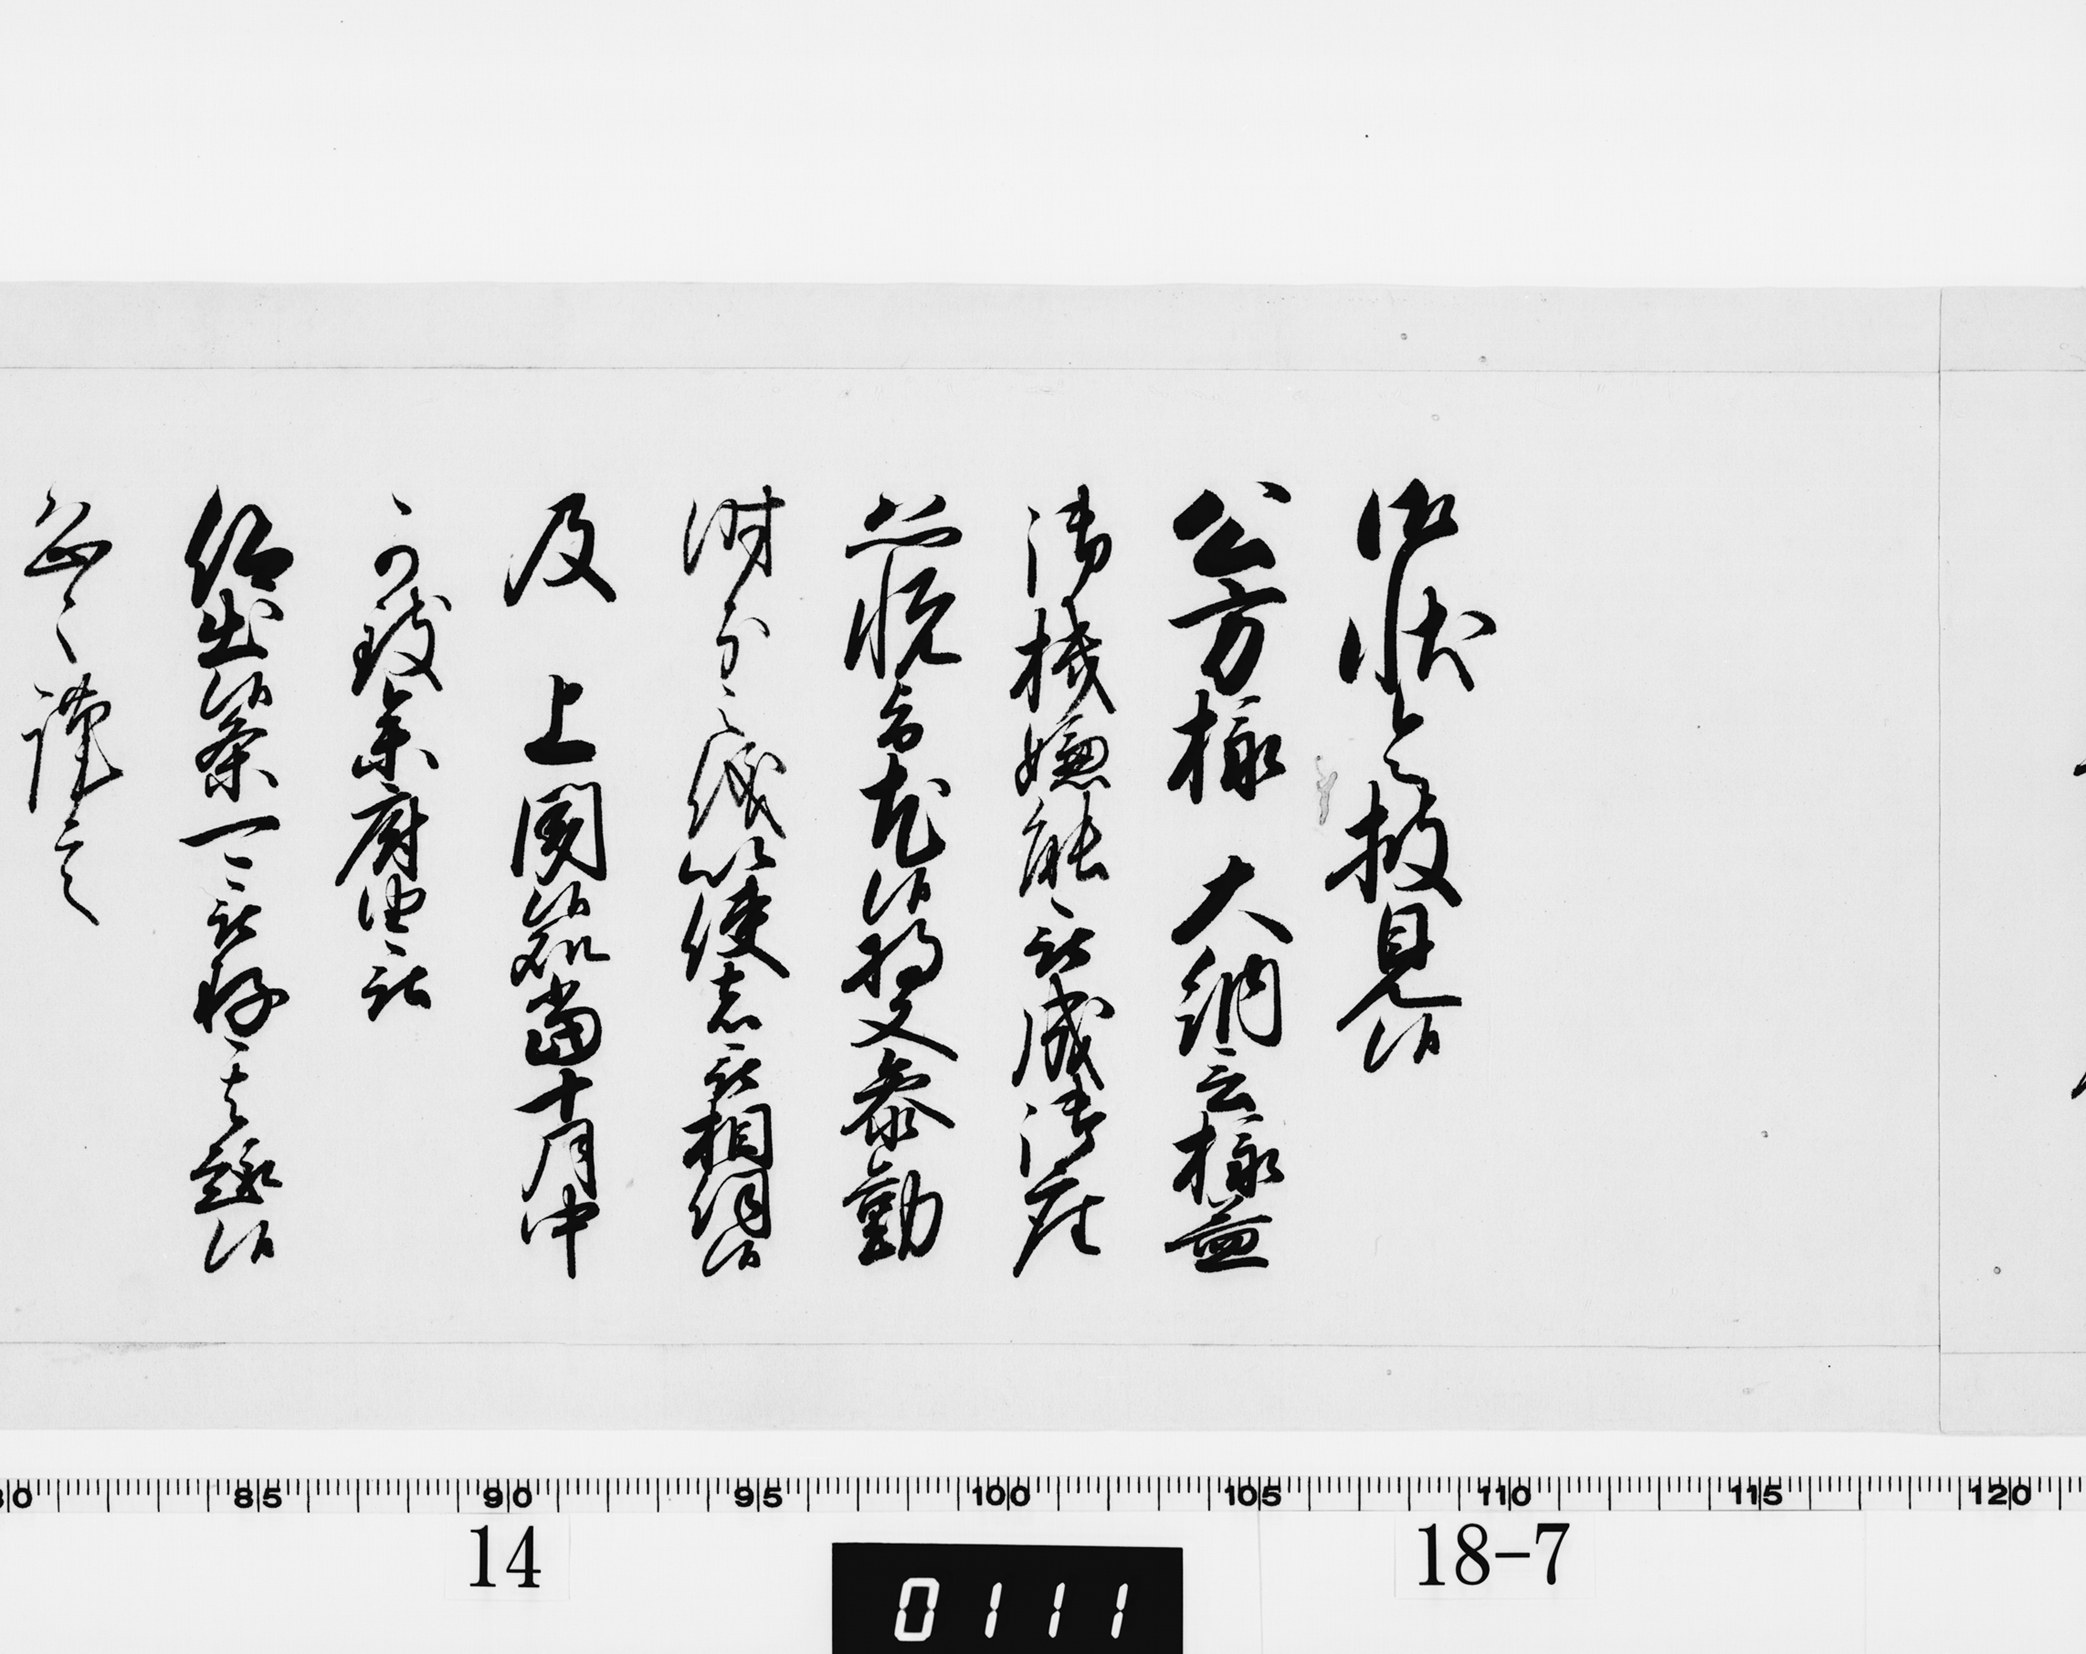 御状令披見候
公方様 大納言様益
御機嫌能被成御座
恐悦旨尤候将又参勤
時分之儀以使者被相伺候
及 上聞候処当十月中
可致参府由被
仰出候条可被存其趣候
恐々謹言
80 85 90 95 100 105 110 115 120
14 18-7
0111